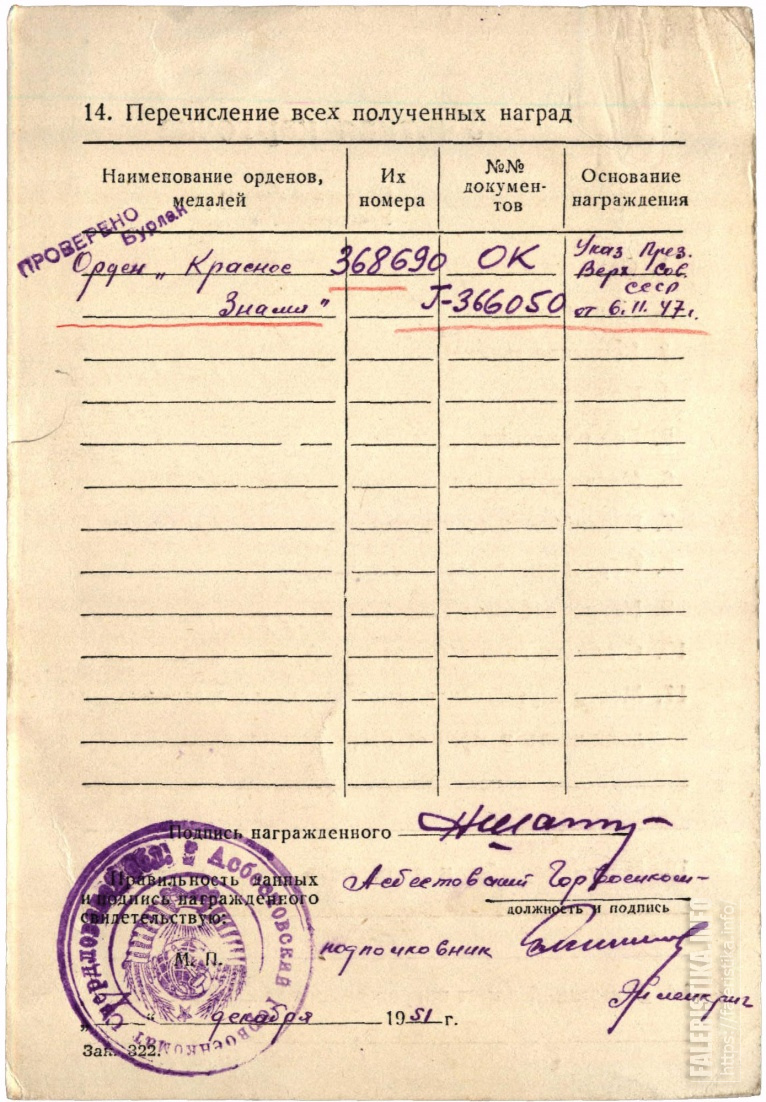 14. Перечисление всех полученных наград
Наименование орденов, медалей
Их номера
№№ документов
Основание награждения
ПРОВЕРЕНО
Бурлак
Орден „Красное
368690
ОК
Указ През.
Верх. Сов.
СССР
Знамя"
Т-366050
от 6.11.47г.
Подпись награжденного
Правильность данных
и подпись награжденного
свидетельствую:
Асбестовский Горвоенком-
должность и подпись
М. П.
подполковник
„ “ декабря 1951 г.
Зак. 322.
Асбестовский Горвоенкомат
FALERISTIKA.INFO
https://faleristika.info/